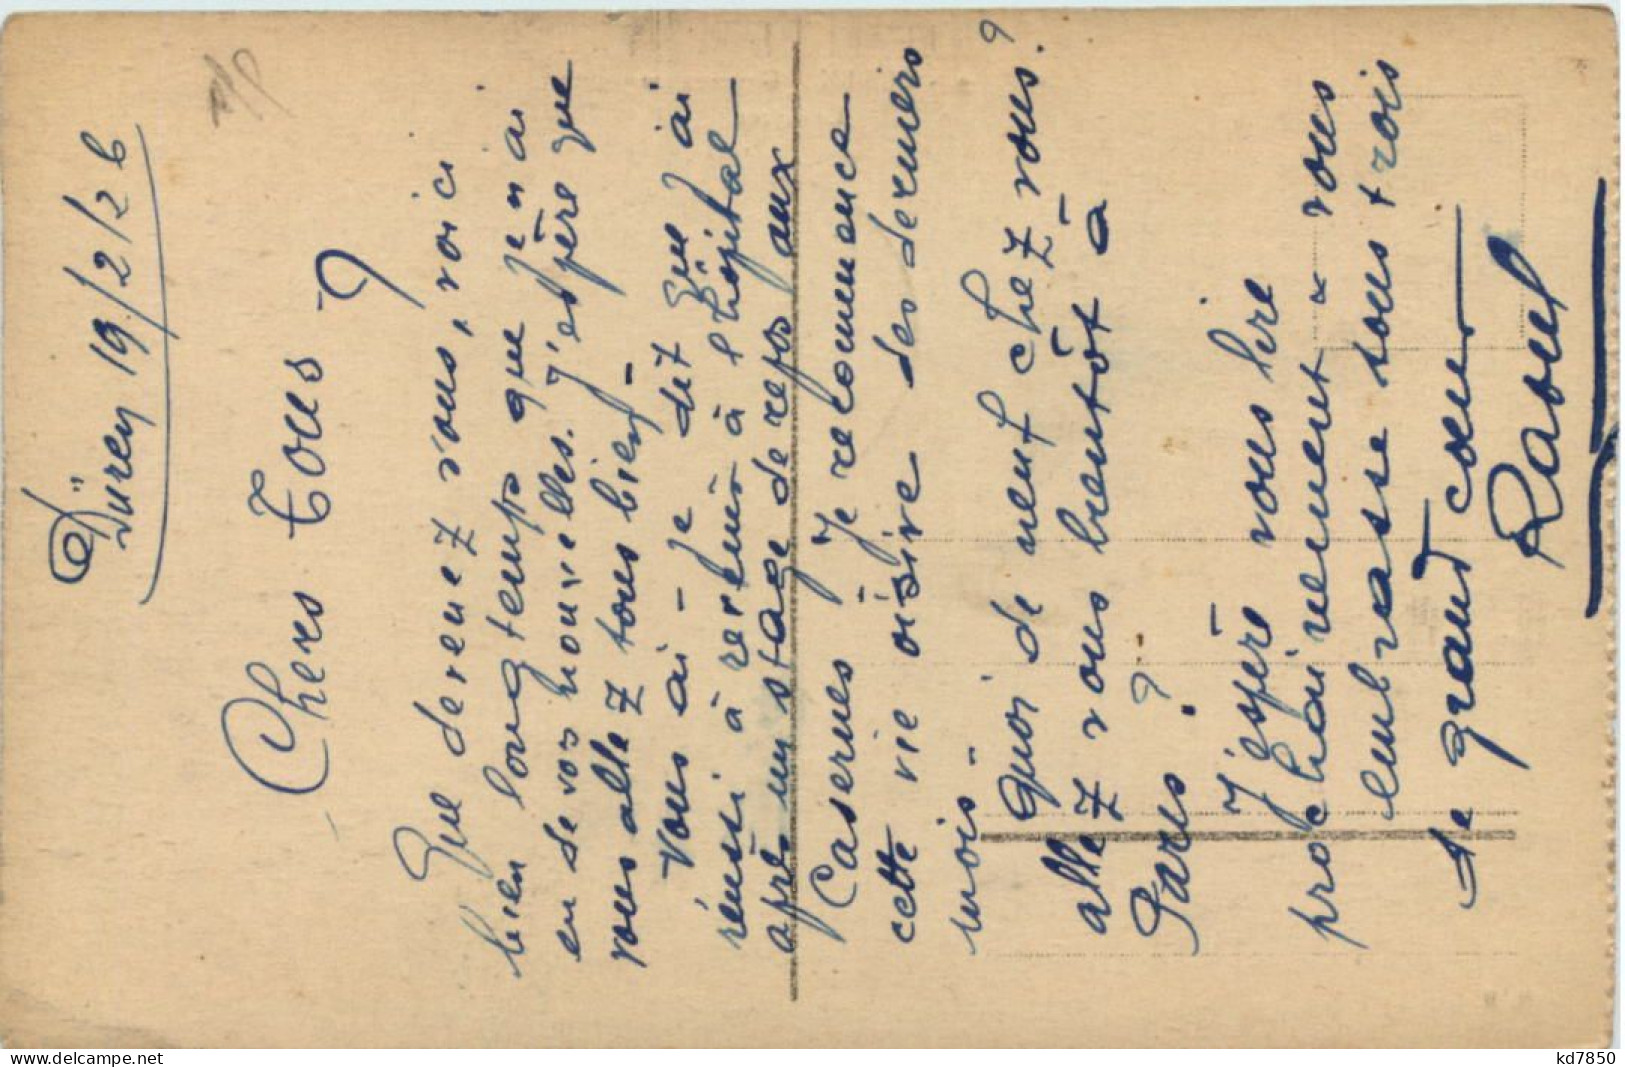 Düren 19/2/26
Chers Tous
Que devenez vous, voici
bien longtemps que je n'ai
eu de vos nouvelles. J'espère que
vous allez tous bien -
Vous ai-je dit que j'ai
réussi à revenir à l'hôpital
après un stage de repos aux
Casernes Je recommence
cette vie oisive des derniers
mois -
Quoi de neuf chez vous ?
allez vous bientôt à
Paris ?
J'espère vous lire
prochainement & vous
embrasse tous trois
de grand cœur
Raoul
www.delcampe.net
kd7850